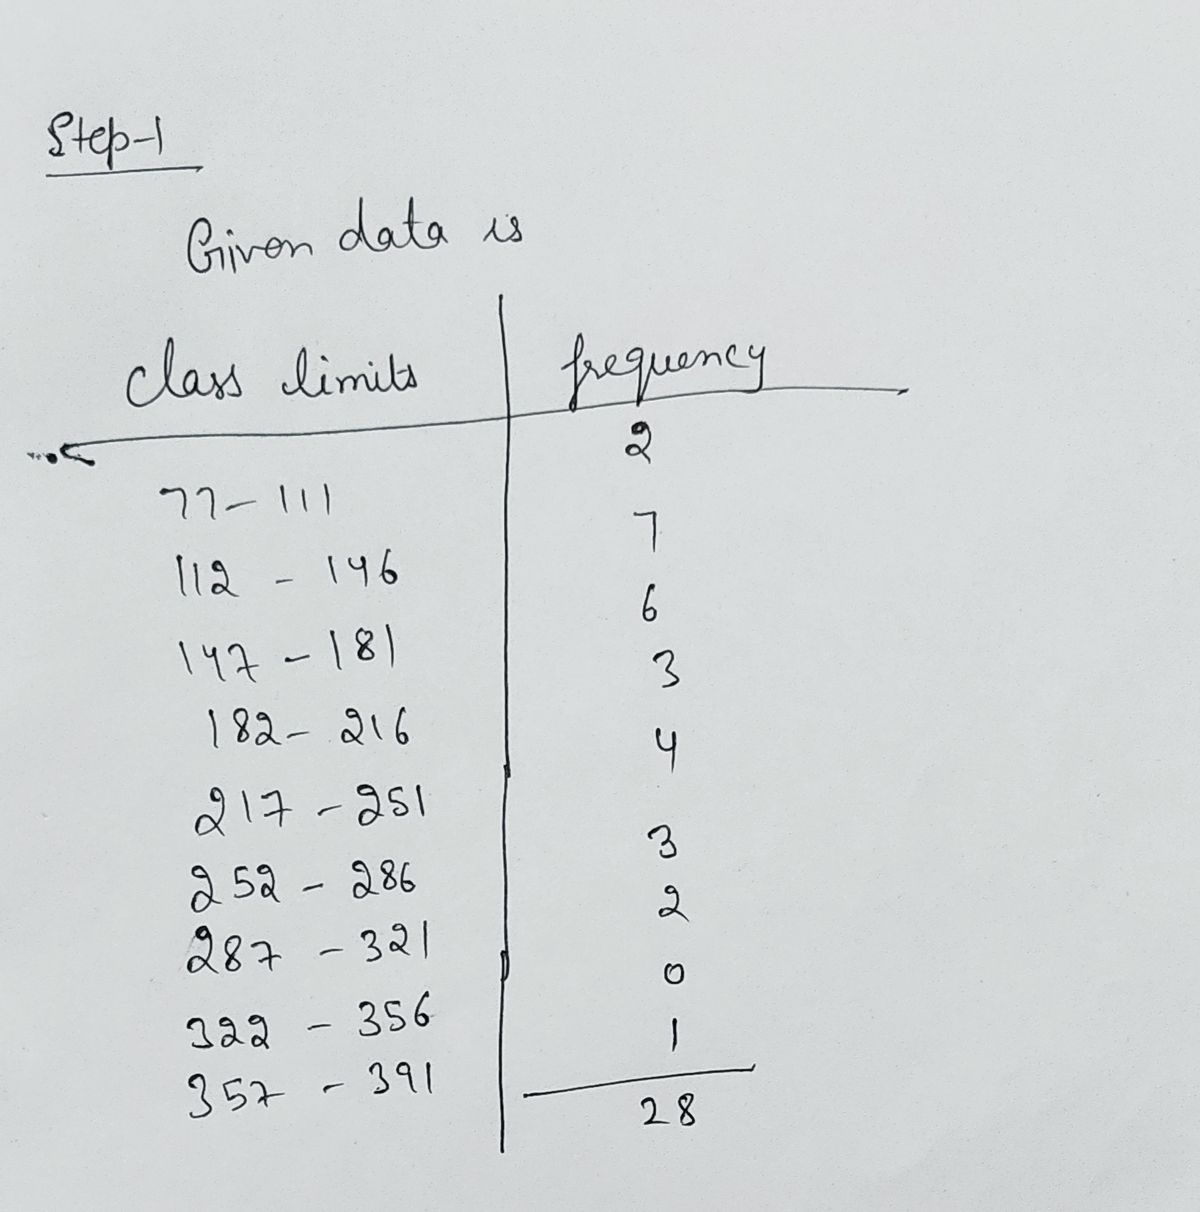 Step-1
Given data is
class limits frequency
77-111 2
112 - 146 7
147 - 181 6
182- 216 3
217 - 251 4
252 - 286 3
287 - 321 2
322 - 356 0
357 - 391 1
28